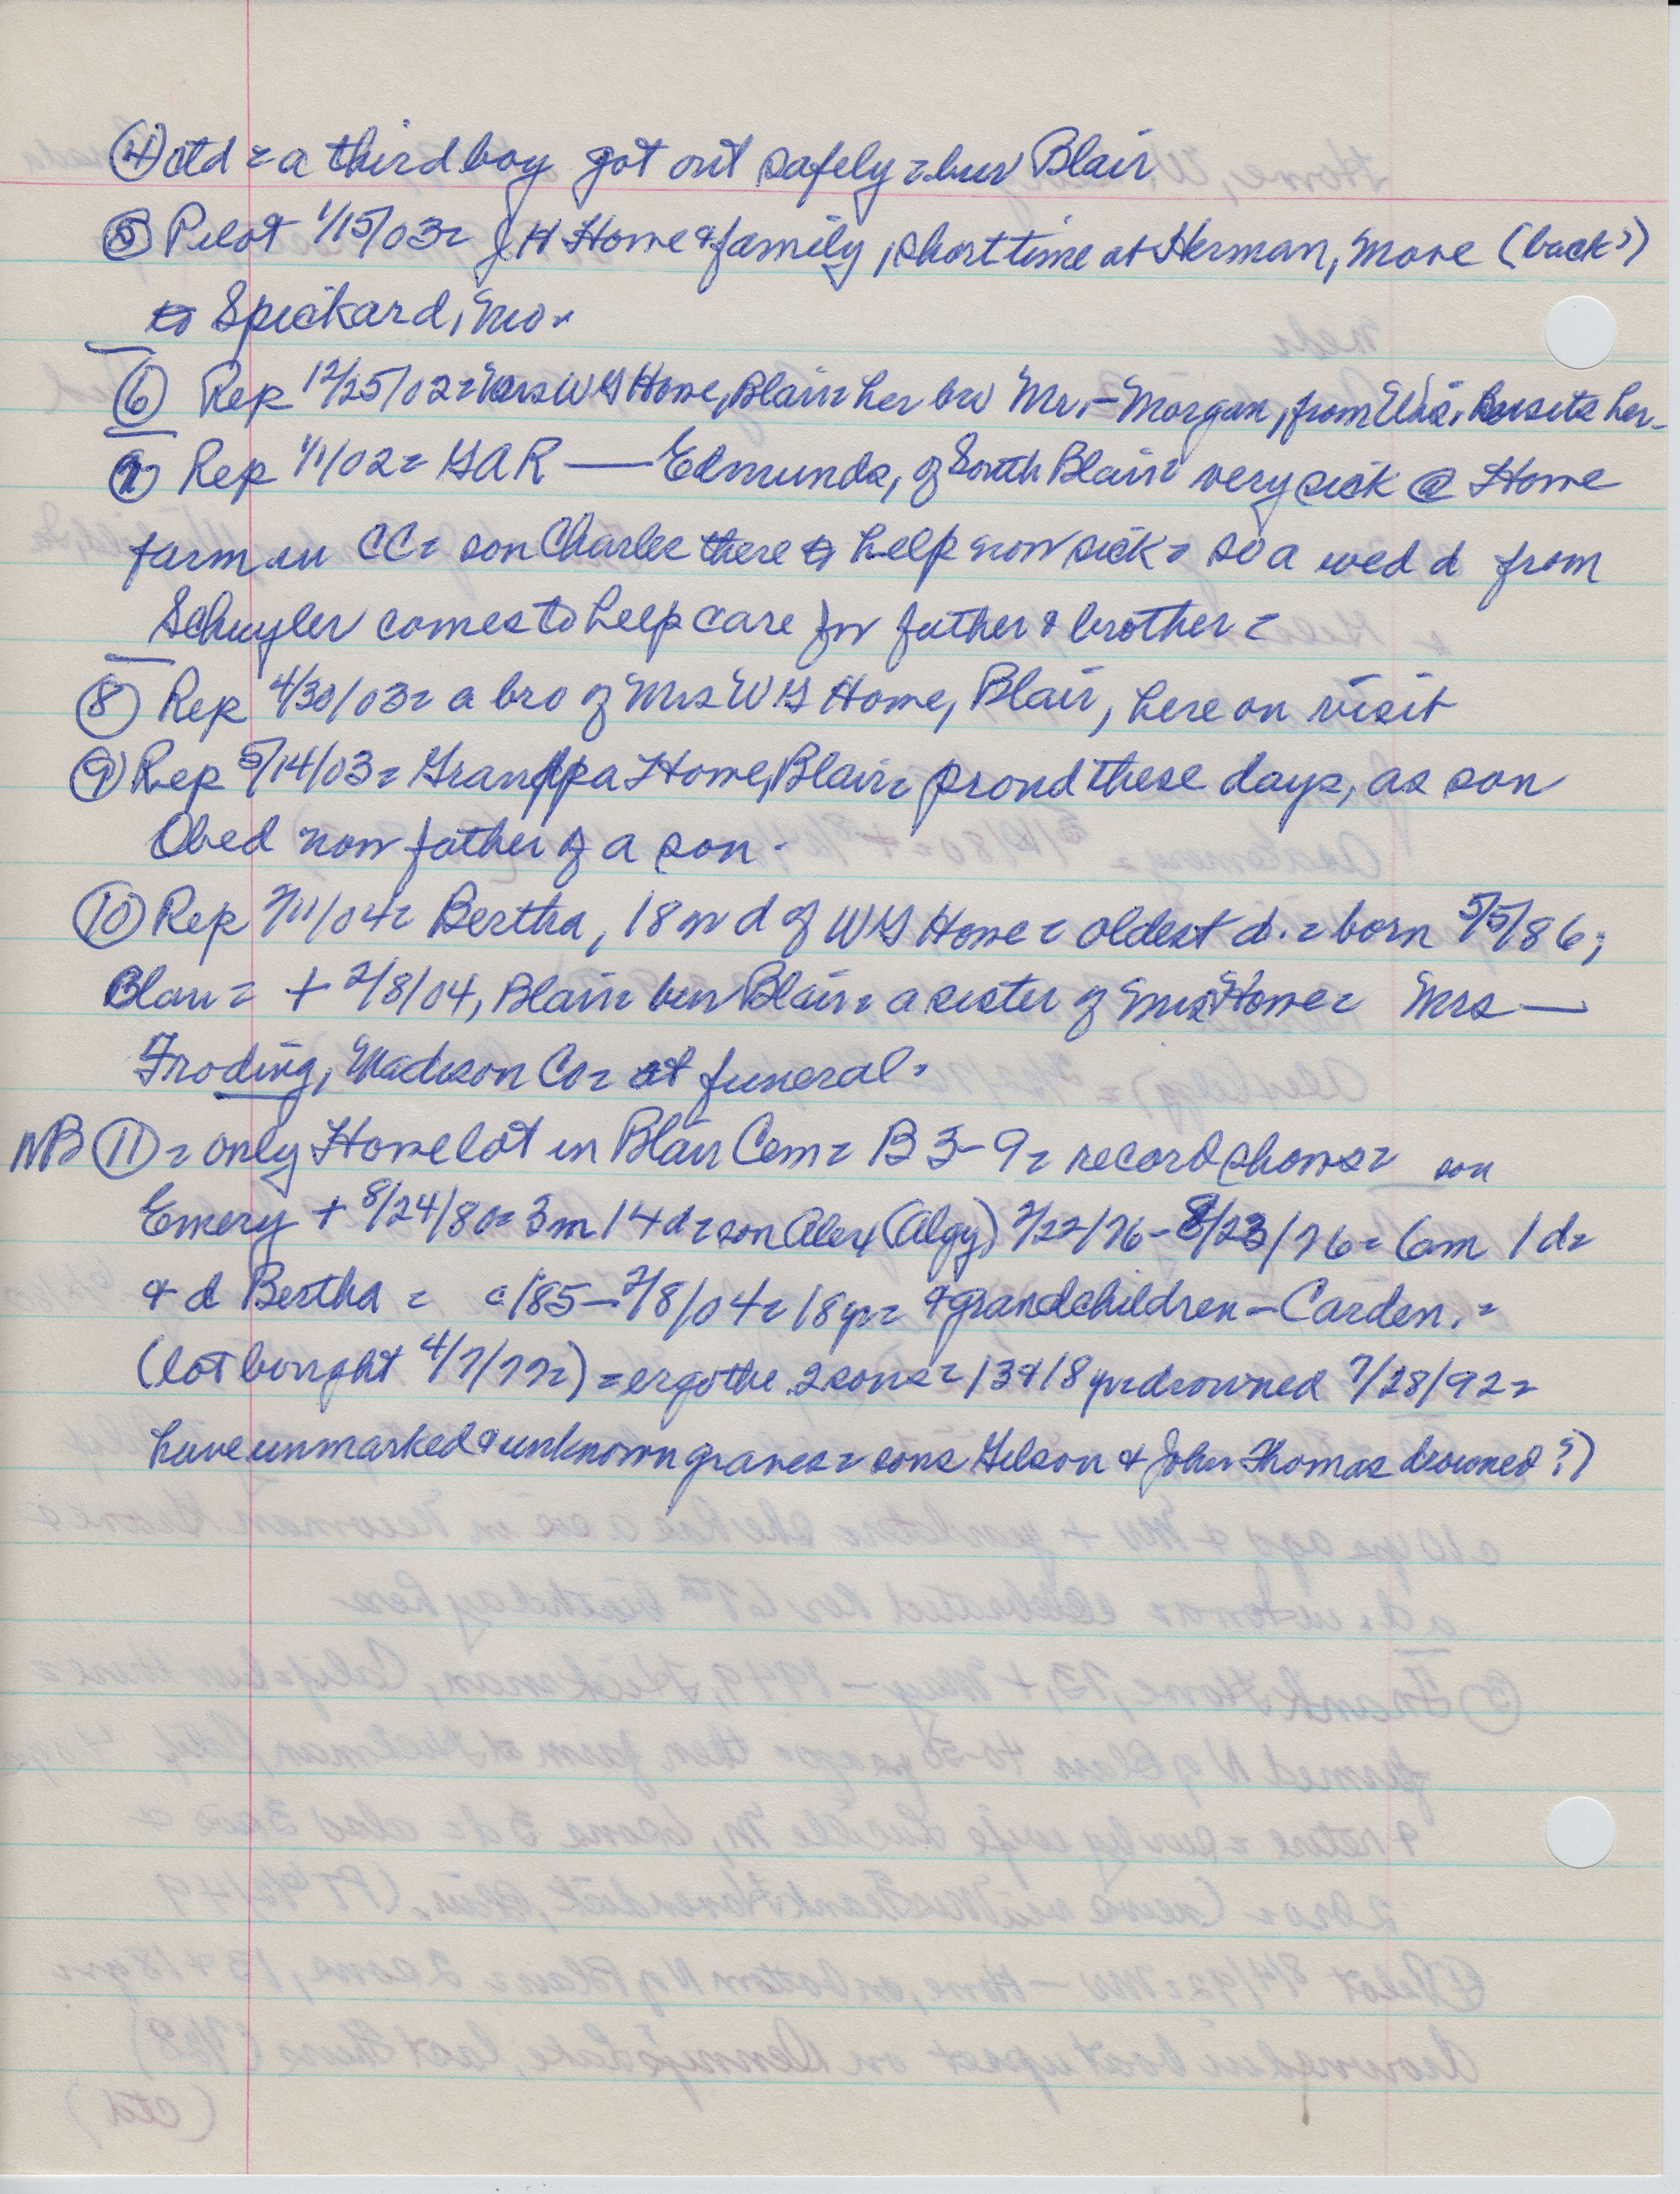 ④ ctd = a third boy got out safely = bur Blair
⑤ Pilot 1/15/03 = J H Horne & family, short time at Herman, move (back?)
to Spickard, Mo.
⑥ Rep 12/25/02 = Mrs W G Horne, Blair = her bro Mr. - Morgan, from Wis. visits her -
⑦ Rep 1/1/02 = GAR — Edmunds, of South Blair = very sick @ Horne
farm in CC = son Charles there to help now sick = so a wed d from
Schuyler comes to help care for father & brother =
⑧ Rep 4/30/03 = a bro of Mrs W G Horne, Blair, here on visit
⑨ Rep 5/14/03 = Grandpa Horne, Blair = proud these days, as son
Obed now father of a son.
⑩ Rep 2/11/04 = Bertha, 18 on d of W G Horne = oldest d. = born 5/5/86;
Blair = + 2/8/04, Blair = bur Blair = a sister of Mrs Horne = Mrs —
Froding, Madison Co = at funeral.
NB ⑪ = only Horne lot in Blair Cem = B 3-9 = record shows = son
Emery + 8/24/80 = 3m 14d = son Alex (Algy) 2/22/76 - 8/23/76 = 6m 1d =
& d Bertha = c/85 - 2/8/04 = 18 yr = & grandchildren - Carden. =
(lot bought 4/7/77 =) = ergo the 2 sons = 13 & 18 yr = drowned 7/28/92 =
have unmarked & unknown graves = sons Gilson & John Thomas drowned?)